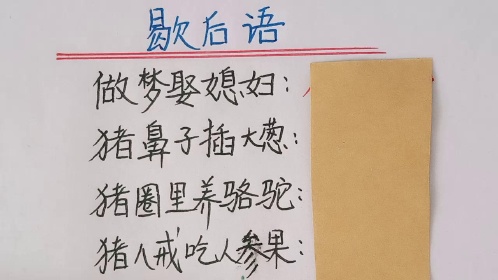 歇后语
做梦娶媳妇：
猪鼻子插大葱：
猪圈里养骆驼：
猪八戒吃人参果：